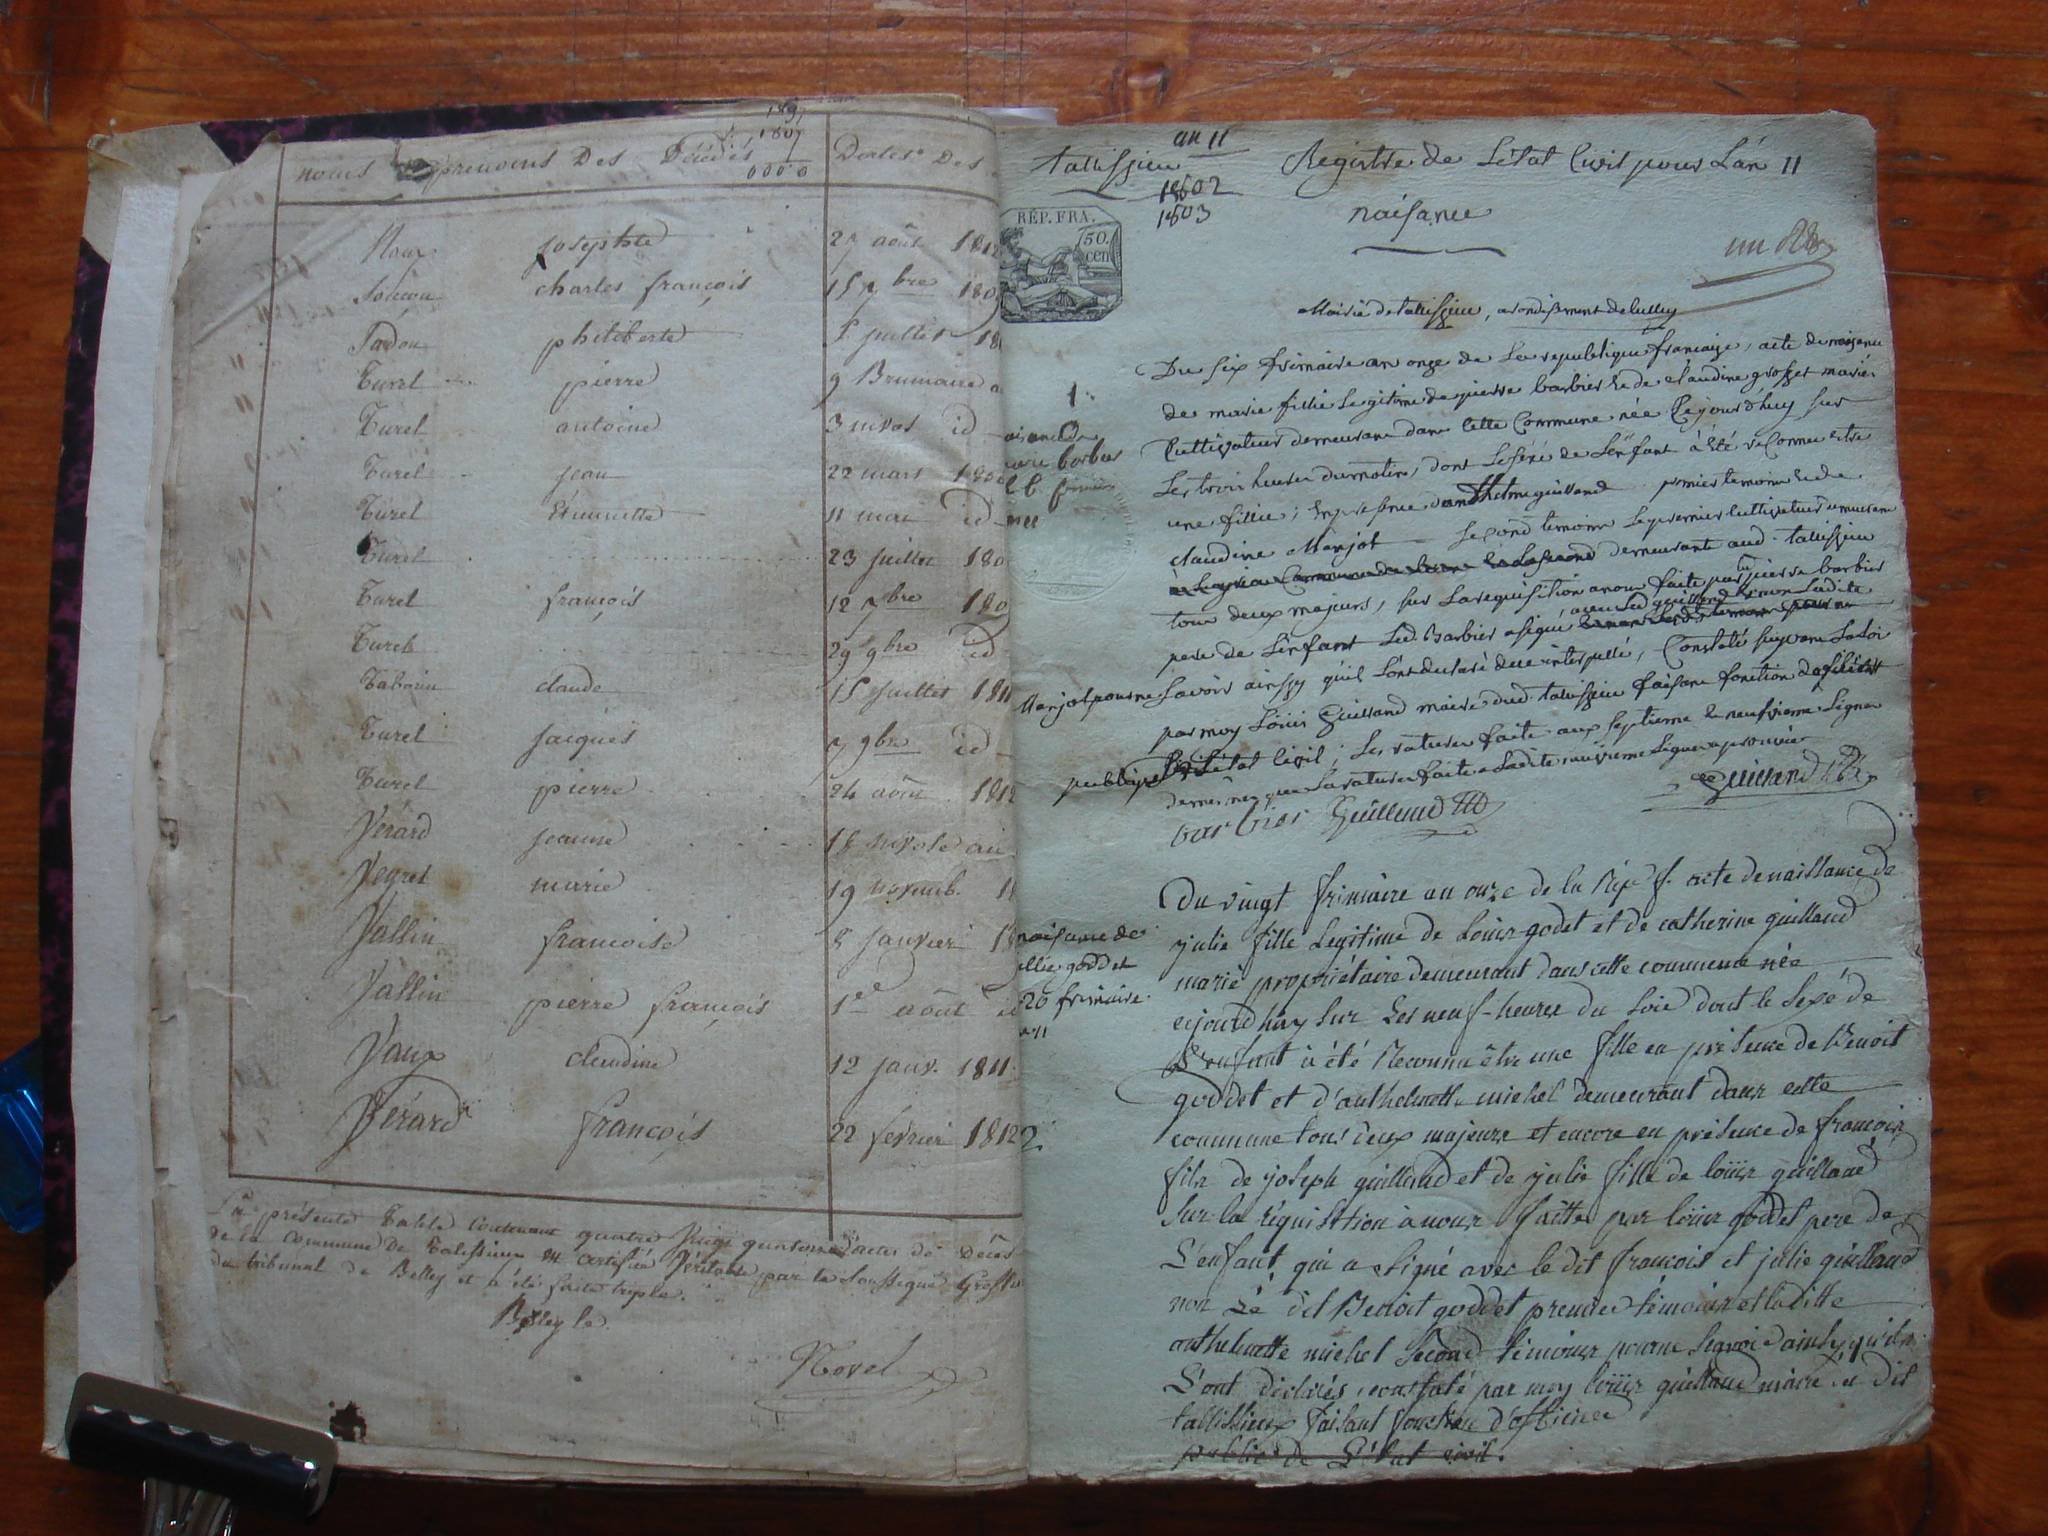 1807
0000
noms prenoms Des Décédés
Dates Des
Roux josephte 27 août 1812
charles françois 15 7bre 180
philiberte juillet 18
Turel pierre 9 Brumaire a
Turel antoine 3 nivos id
Turel jean 22 mars 180
Turel Etiennette 11 mai id
Turel 23 juillet 180
Turel françois 12 7bre 180
Turel 29 9bre id
Taborin claude 15 juillet 1811
Turel jacques 7 9bre id
Turel pierre 24 août 1812
Vérard jeanne 18 nivose an
Veyret marie 19 novemb. 1
Vallin francoise 8 janvier 18
Vallin pierre françois 1er août id
Vaux claudine 12 janv. 1811
Vérard françois 22 fevrier 1812
La présente Table contenant quatre Vingt quatorze actes de Décès
de la commune De Talissieu est certifiée Véritable par le Soussigné Greffier
du tribunal de Belley et a été faite triple.
Belley le
Novel
an 11
tallissieu
1802
1803
Registre de L'état Civil pour L'an 11
naisance
RÉP. FRA.
50.
cen
un
Mairie de tallissieu, arondisement de belley
1
Du six frimaire an onze de La republique francaize, acte de naisance
de marie fillie Legitime de pierre barbier & de claudine grosset mariés
Cultivateur demeurant dans cette Commune née Cejourd'huy sur
Les trois heures du matin, dont Le séxé de L'enfant à été reConnu estre
une fillie; En presence d'anthelme guilland premier temoin & de
claudine Manjot second temoins Le premier cultivateur demeurant
demeurante aud. tallissieu
tous deux majeurs, sur La requisition a nous faite par pierre barbier
pere de L'enfant Led. Barbier a signé avec Led guilland & non Ladite
Manjot pour ne Savoir ainssy qu'il L'ont declaré de ce interpellé, Constaté suyvant La Loi
par moy Louis Guilland maire dud. tallissieu faisant fonction d'officier
publique de L'état Civil; Les ratures faite aux septieme & neufvieme Lignes
barbier Guilland
Guilland
naisance de
julie goddet
20 frimaire
an 11
Du vingt frimaire an onze de la Rép. f. acte de naissance de
julie fille Legitime de Louis godet et de catherine guilland
marié propriétaire demeurant dans cette commune née
cejourd'huy sur Les neuf heures du soir dont le sexé de
L'enfant à été Reconnu être une fille en présence de Benoit
goddet et d'anthelmette michel demeurant dans cette
commune tous deux majeurs et encore en présence de françois
fils de joseph guilland et de julie fille de loüis guilland
sur la réquisition à nous faitte par loüis goddet pere de
L'enfant qui a signé avec le dit françois et julie guilland
non Lé dit Benoit goddet premier témoins et laditte
anthelmette michel second témoins pour ne savoir ainsy qu'ils
L'ont déclarés, constaté par moy loüis guilland maire du dit
tallissieux faisant fonction d'officier
public de L'état civil.